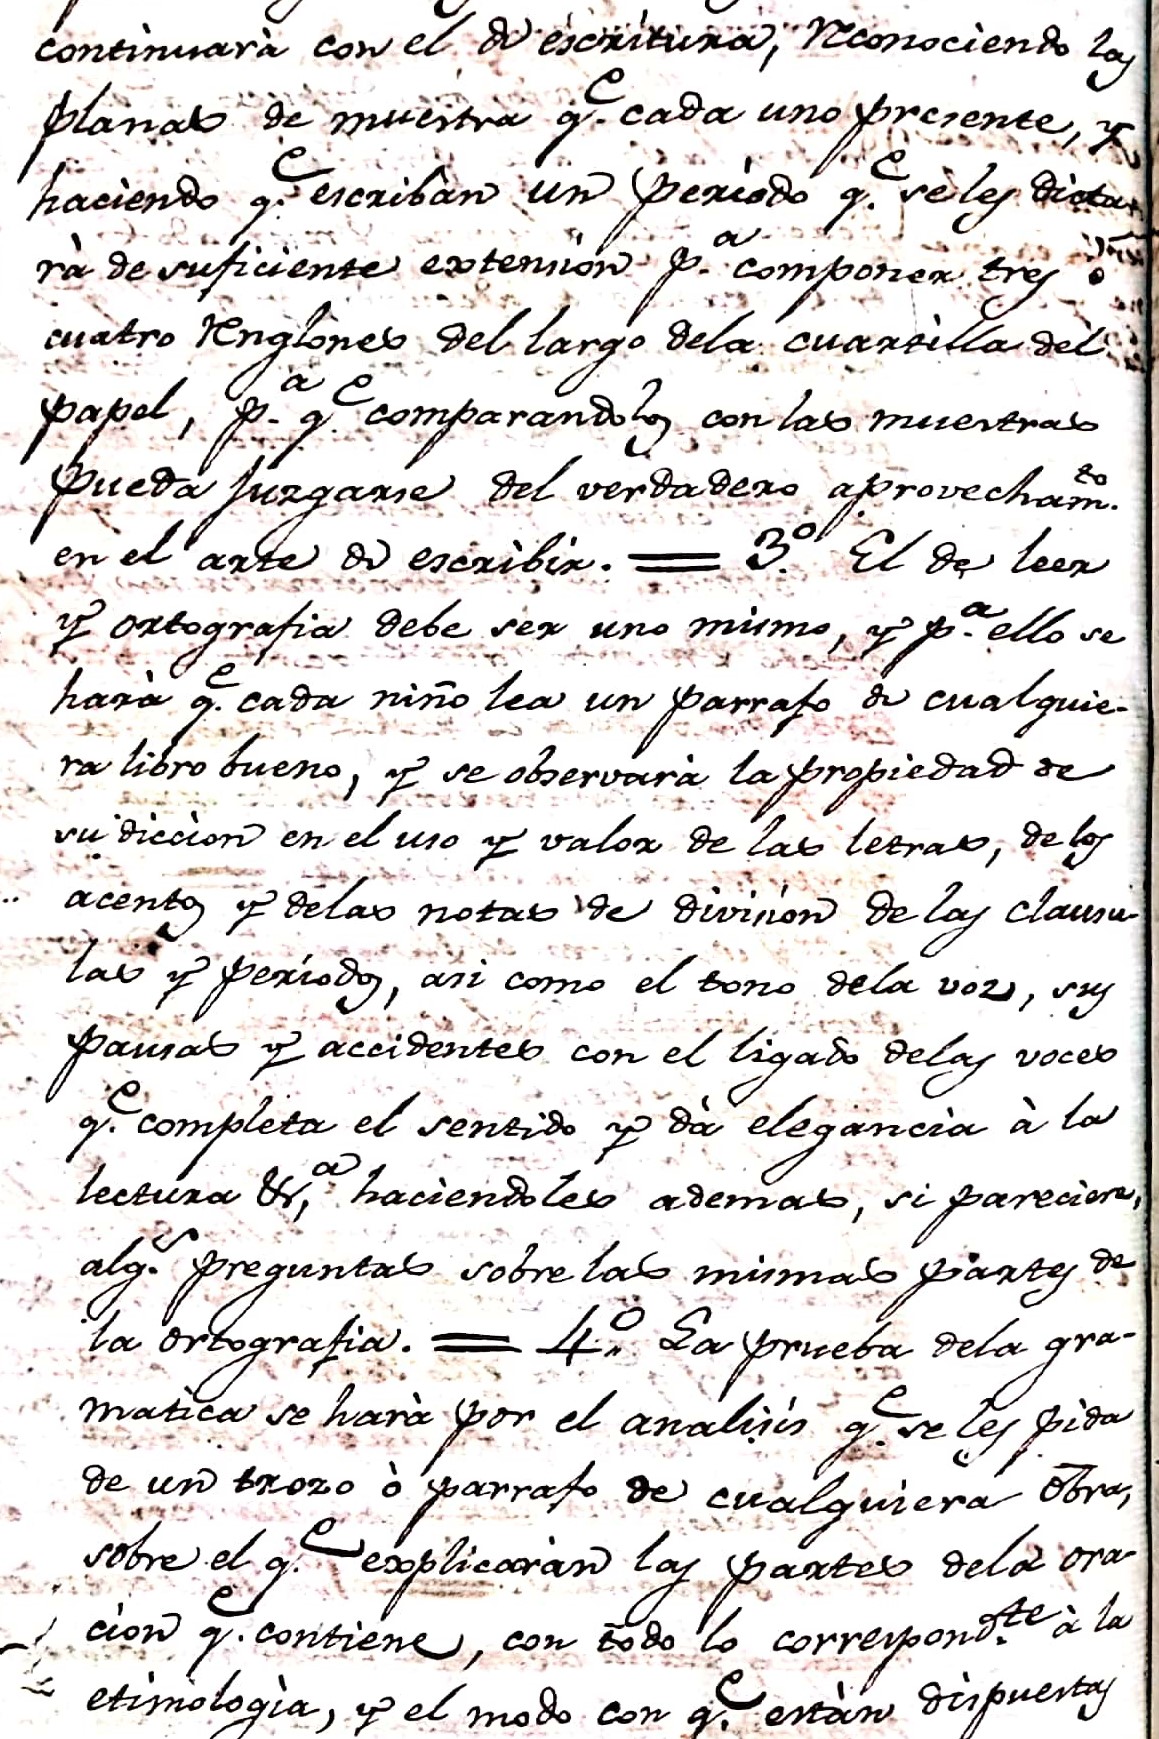 continuarà con el de escritura, reconociendo los
planas de muestra q.e cada uno presente, y
haciendo q.e escriban un periodo q.e se les dicta-
rà de suficiente extension p.a componer tres ò
cuatro renglones del largo dela cuartilla del
papel, p.a q.e comparandolos con las muestras
pueda juzgarse del verdadero aprovecham.to
en el arte de escribir. = 3.o El de leer
y ortografia debe ser uno mismo, y p.a ello se
harà q.e cada niño lea un parrafo de cualquie-
ra libro bueno, y se observarà la propiedad de
su diccion en el uso y valor de las letras, de los
acentos y delas notas de division de las clausu-
las y periodos, asi como el tono dela voz, sus
pausas y accidentes con el ligado delas voces
q.e completa el sentido y dà elegancia à la
lectura &.a haciendoles ademas, si pareciere,
alg.s preguntas sobre las mismas partes de
la ortografia. = 4.o La prueba dela gra-
matica se harà por el analisis q.e se les pida
de un trozo ò parrafo de cualquiera obra,
sobre el q.e explicaràn las partes dela ora-
cion q.e contiene, con todo lo correspond.te à la
etimologìa, y el modo con q.e estàn dispuestas